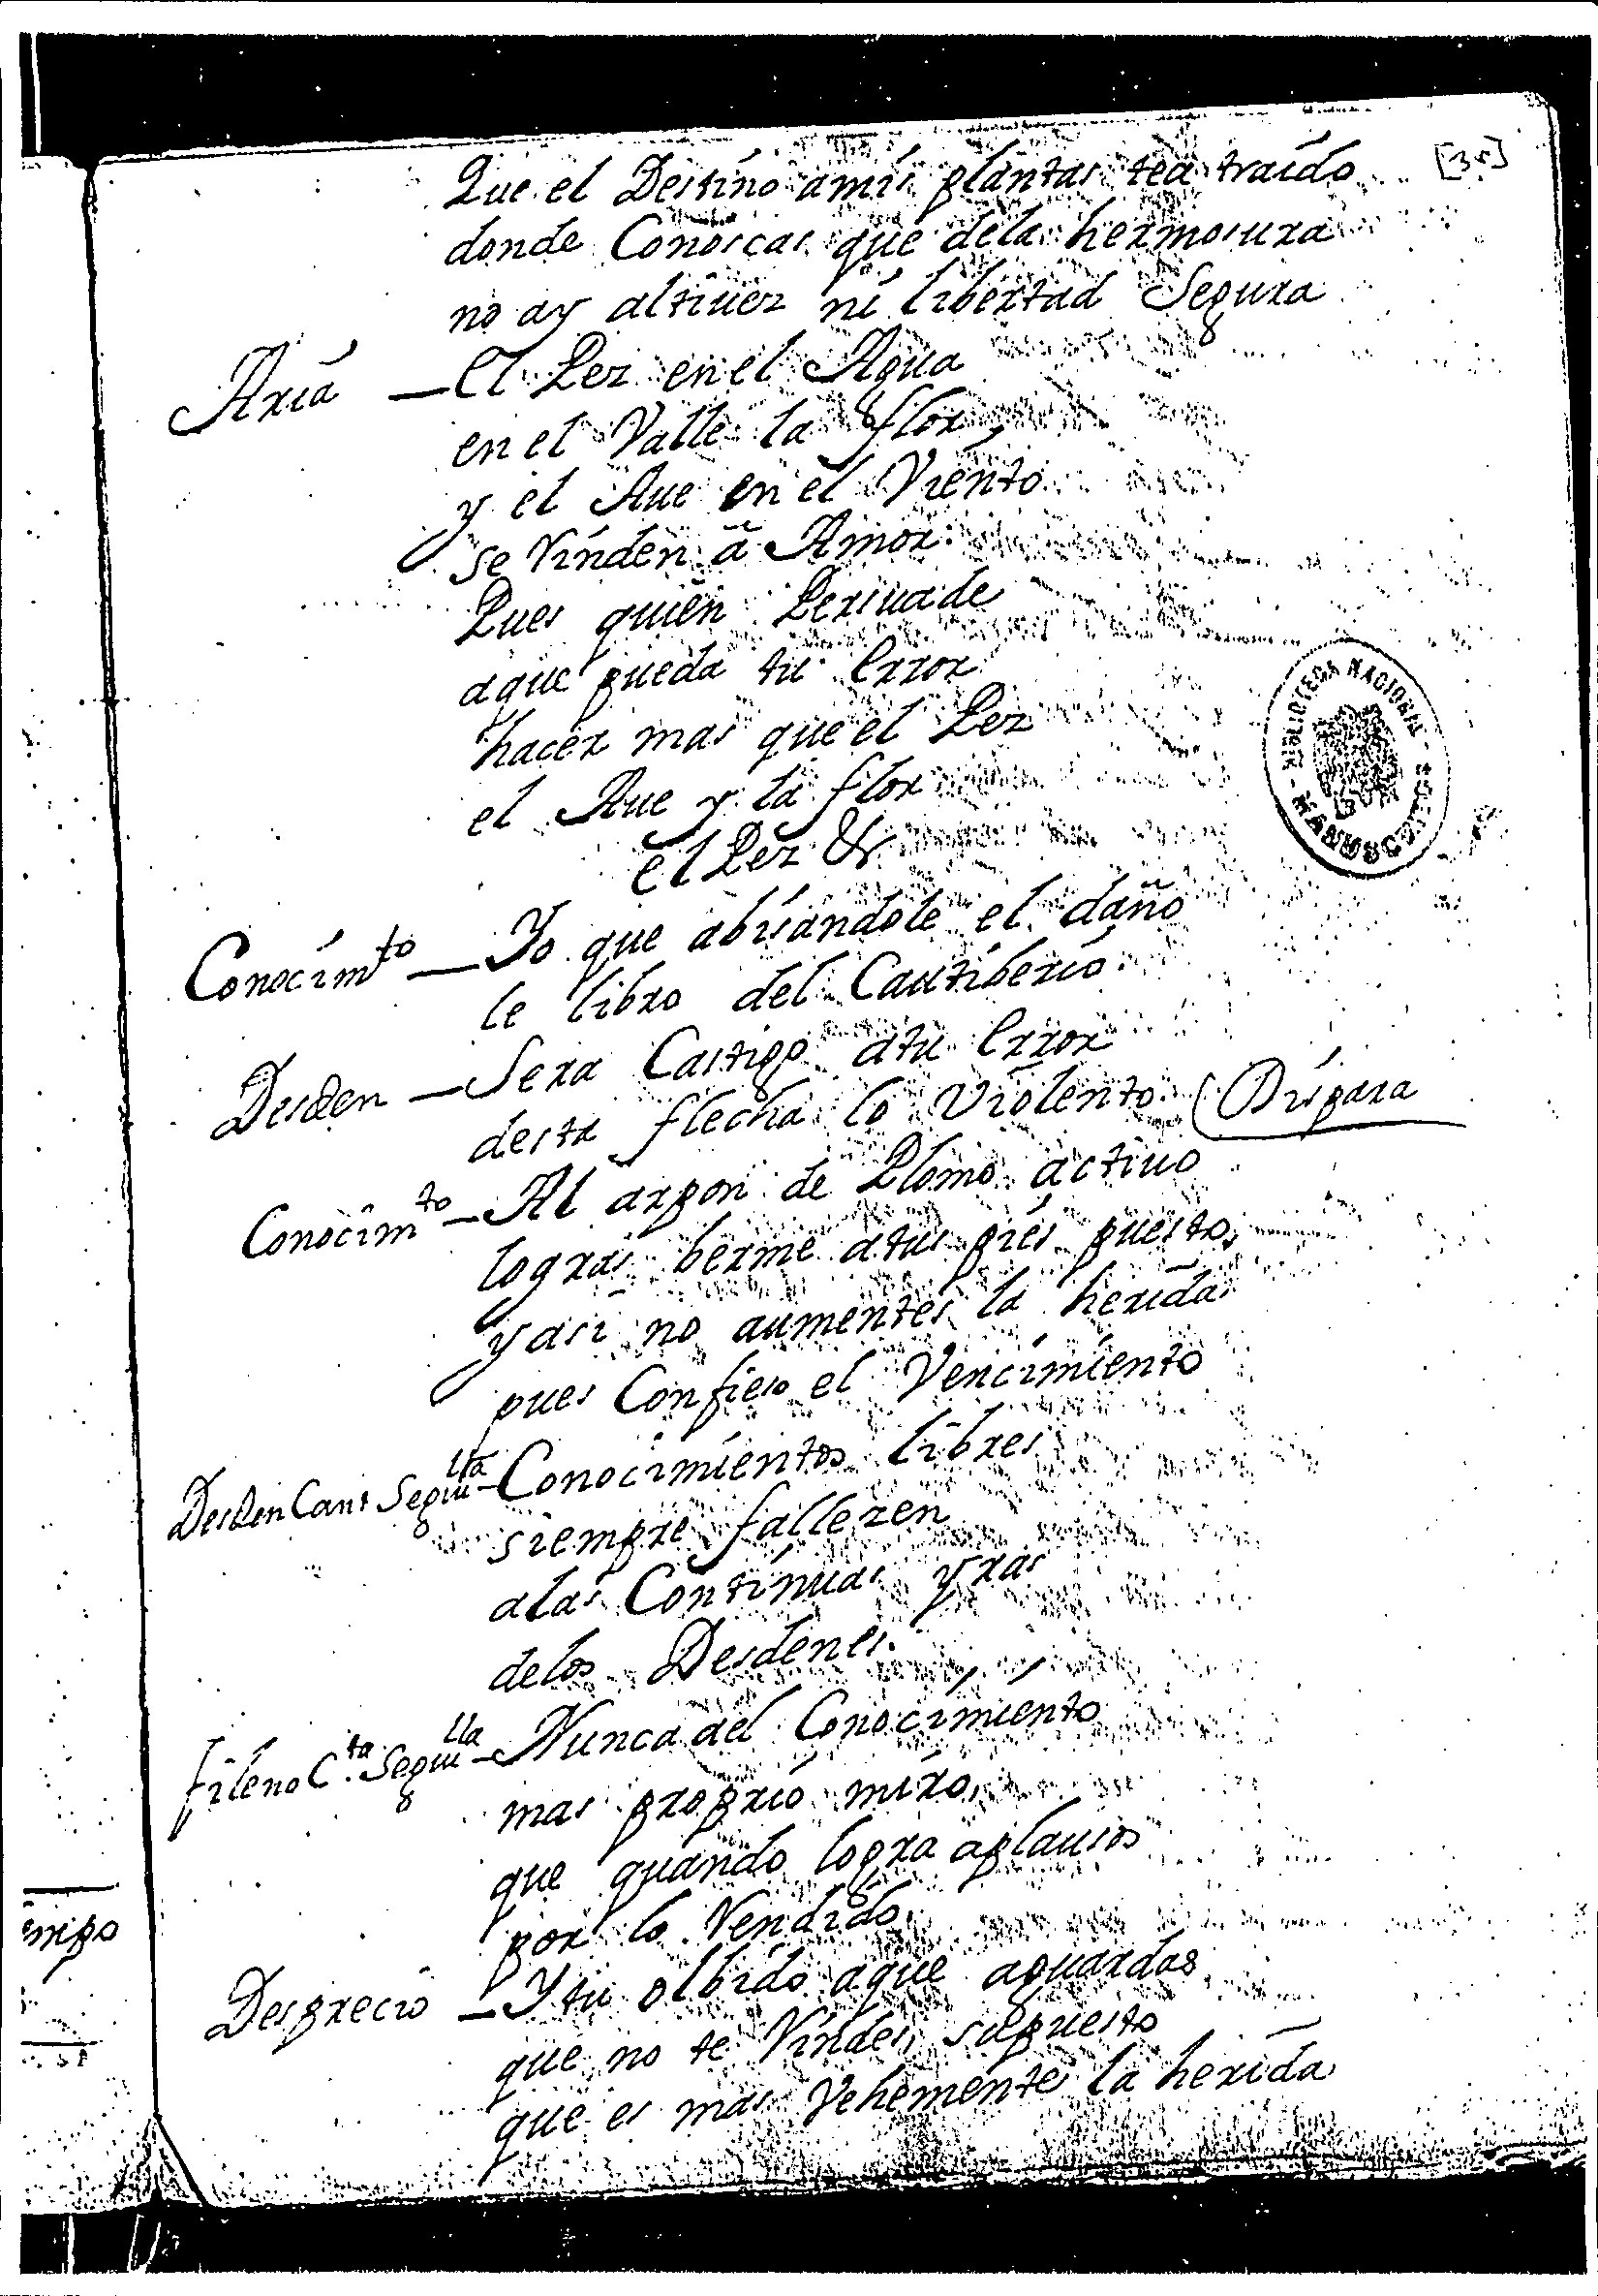 [35]
Que el Destino amis plantas tea traido
donde Conoscas que dela hermosura
no ay altiuez ni libertad Segura
Aria — El Pez en el Agua
en el Valle la flor
y el Aue en el Viento
se Rinden â Amor
Pues quien Persuade
aque pueda tu Error
hacer mas que el Pez
el Aue y la flor
el Pez &
Conocim.to — Yo que abisandole el daño
le libro del Cautiberio
Desden — Sera Castigo atu Error
desta flecha lo Violento (Dispara
Conocim.to — Al arpon de Plomo actiuo
logras berme atus pies puesto,
y asi no aumentes la herida
pues Confieso el Vencimiento
Desden Cant Segui.lla — Conocimientos libres
siempre fallezen
alas Continuas yras
delos Desdenes
Fileno C.ta Segui.lla — Nunca del Conocimiento
mas proprio miro,
que quando logra aplausos
por lo Rendido
Desprecio — Y tu olbido aque aguardas
que no te Rindes, supuesto
que es mas Vehemente la herida
BIBLIOTECA NACIONAL
MANUSCRITOS
empo